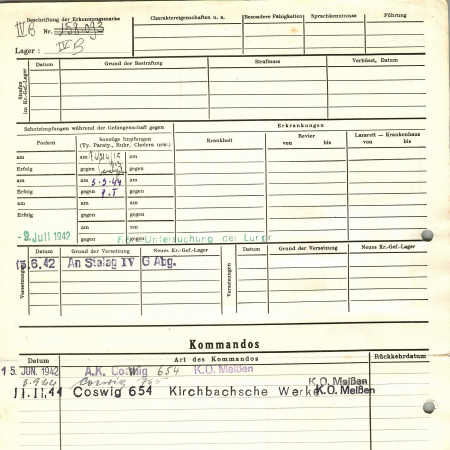 Beschriftung der Erkennungsmarke
IV B Nr. 158.093
Lager: IV B
Charaktereigenschaften u. a. Besondere Fähigkeiten Sprachkenntnisse Führung
Strafen im Kr.-Gef.-Lager Datum Grund der Bestrafung Strafmass Verbüsst, Datum
Schutzimpfungen während der Gefangenschaft gegen Erkrankungen
Pocken Sonstige Impfungen (Ty. Paraty., Ruhr, Cholera usw.) Krankheit Revier von bis Lazarett - Krankenhaus von bis
am am am
Erfolg gegen gegen
am am 3.3.44 am
Erfolg gegen gegen
am am am
Erfolg gegen gegen
am am
-9. Juli 1942 gegen gegen Untersuchung der Lunge
Versetzungen Datum Grund der Versetzung Neues Kr.-Gef.-Lager Versetzungen Datum Grund der Versetzung Neues Kr.-Gef.-Lager
15.6.42 An Stalag IV G Abg.
Kommandos
Datum Art des Kommandos Rückkehrdatum
15. JUN. 1942 A.K. Coswig 654 K.O. Meißen
Coswig
11.11.44 Coswig 654 Kirchbachsche Werke K.O. Meißen
K.O. Meißen